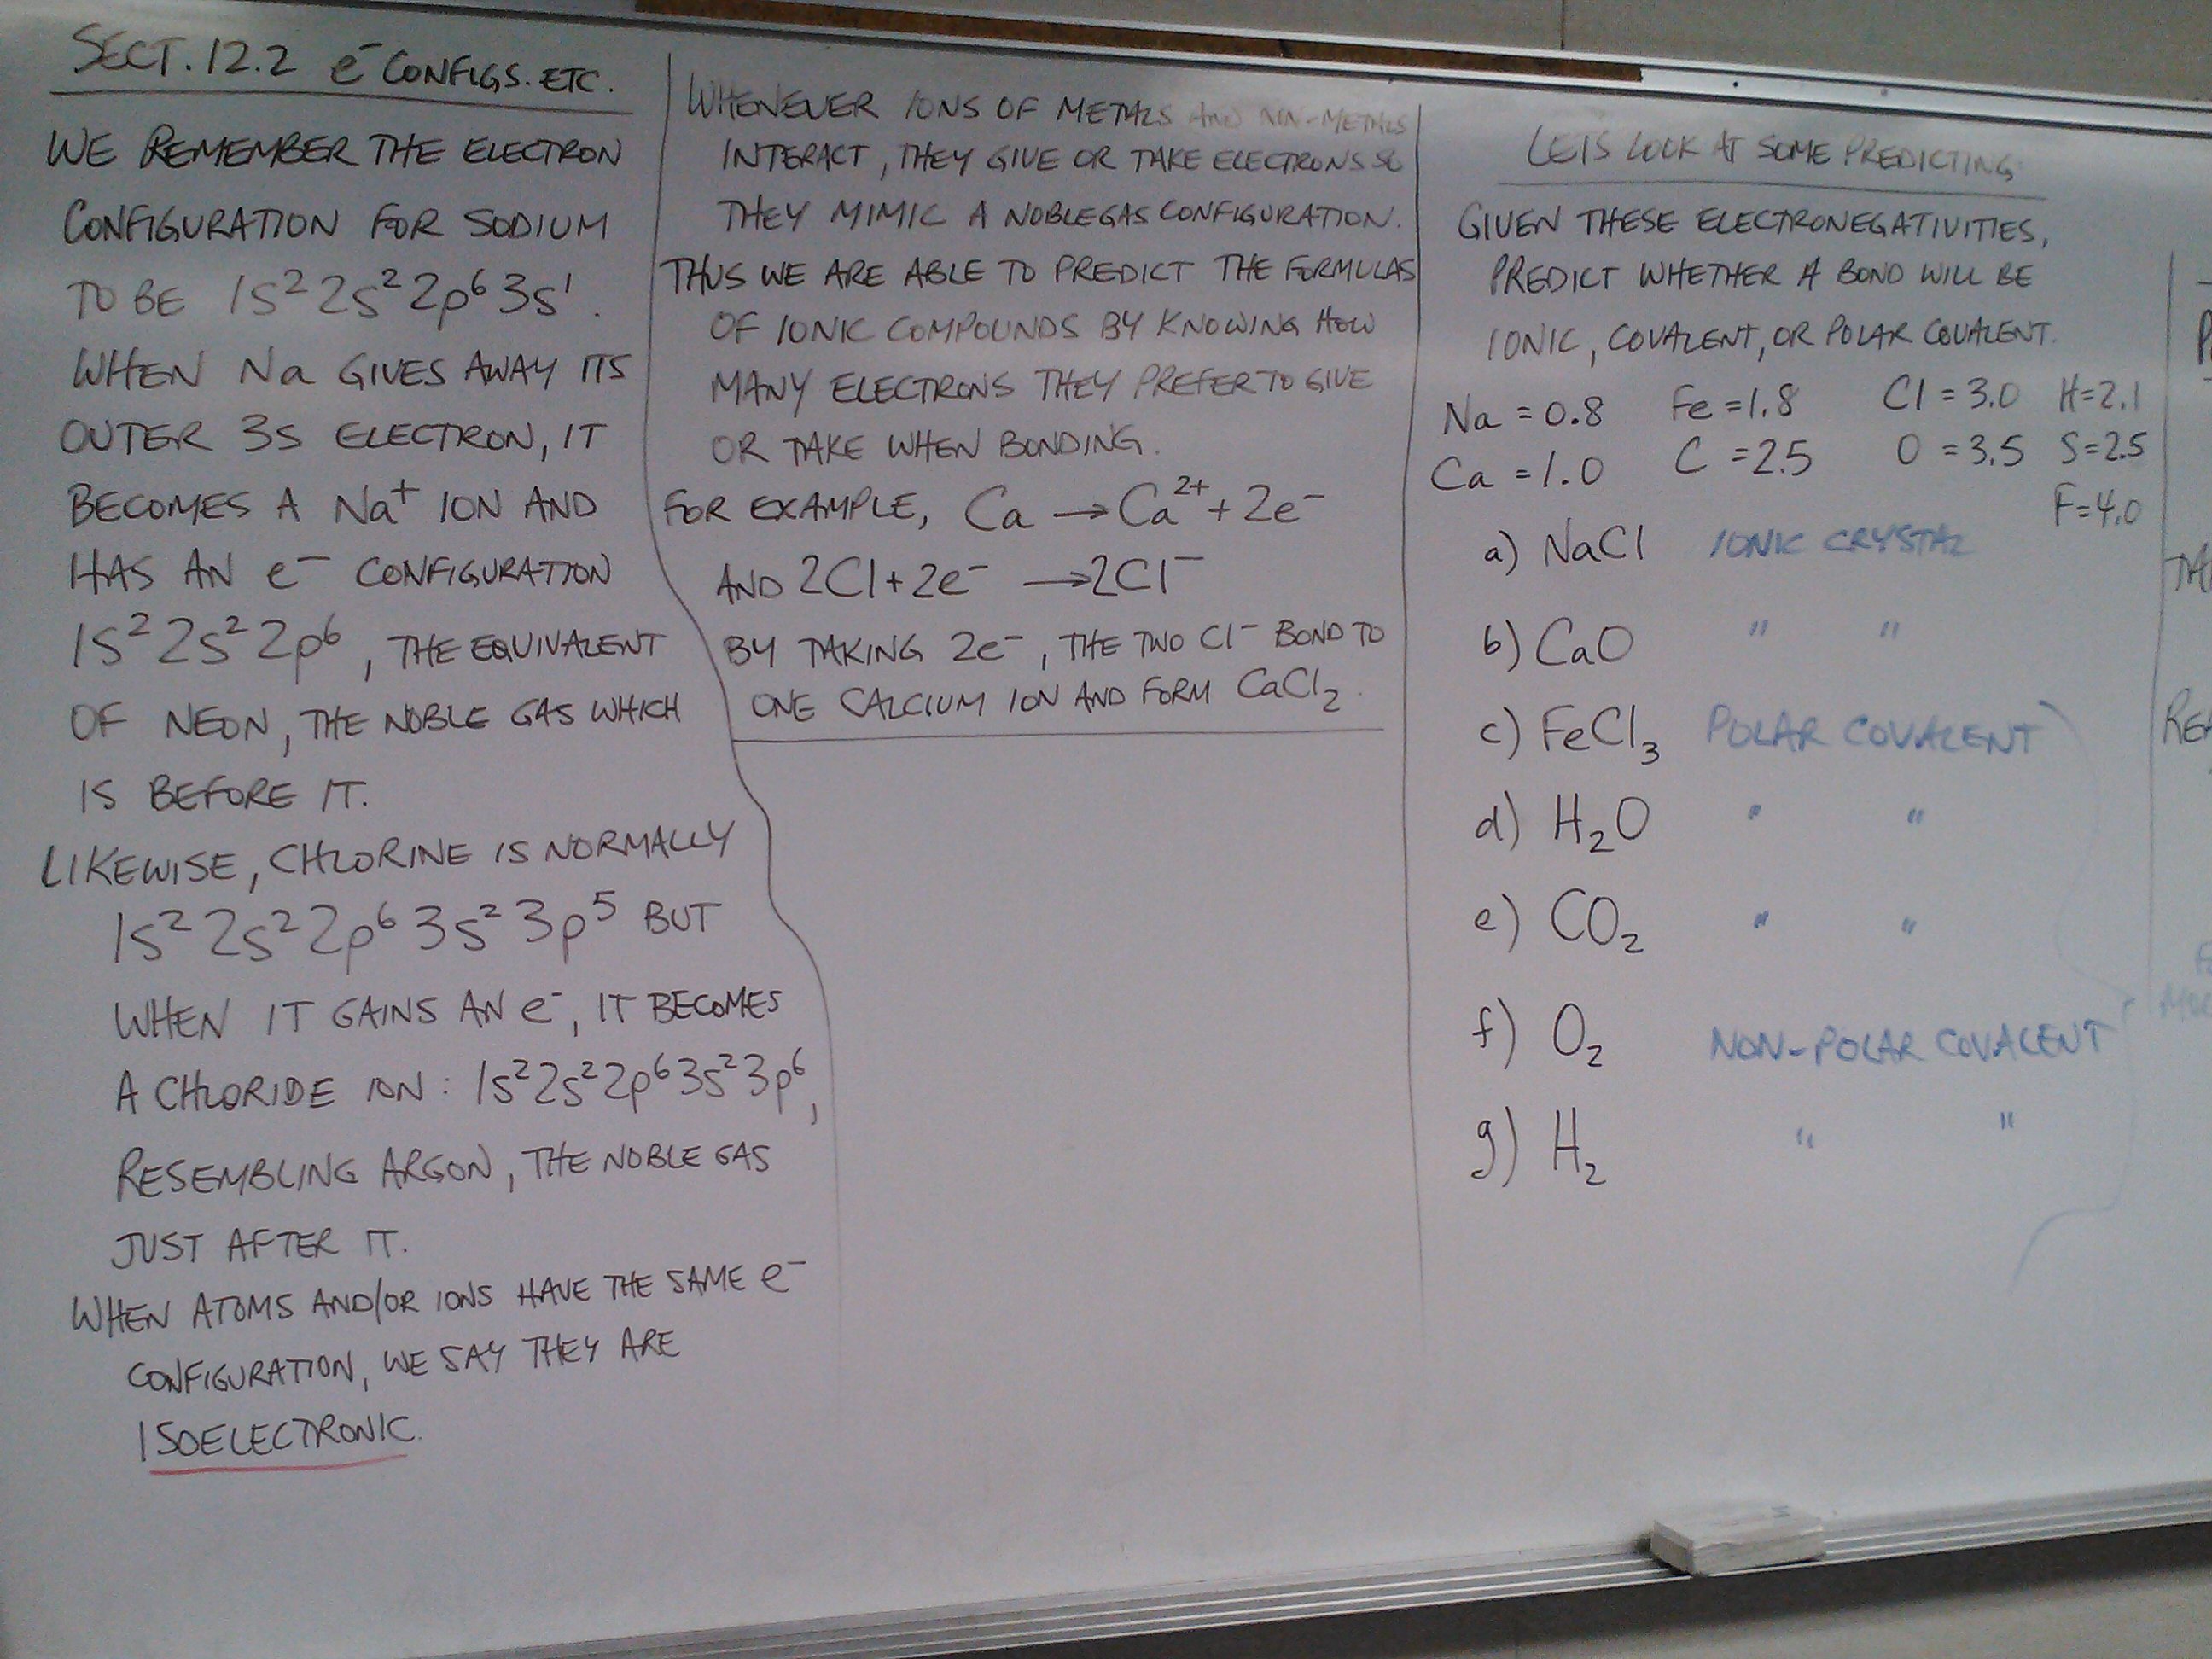 SECT. 12.2 e⁻ CONFIGS. ETC.
WE REMEMBER THE ELECTRON
CONFIGURATION FOR SODIUM
TO BE 1s² 2s² 2p⁶ 3s¹.
WHEN Na GIVES AWAY ITS
OUTER 3s ELECTRON, IT
BECOMES A Na⁺ ION AND
HAS AN e⁻ CONFIGURATION
1s² 2s² 2p⁶, THE EQUIVALENT
OF NEON, THE NOBLE GAS WHICH
IS BEFORE IT.
LIKEWISE, CHLORINE IS NORMALLY
1s² 2s² 2p⁶ 3s² 3p⁵ BUT
WHEN IT GAINS AN e⁻, IT BECOMES
A CHLORIDE ION: 1s² 2s² 2p⁶ 3s² 3p⁶,
RESEMBLING ARGON, THE NOBLE GAS
JUST AFTER IT.
WHEN ATOMS AND/OR IONS HAVE THE SAME e⁻
CONFIGURATION, WE SAY THEY ARE
ISOELECTRONIC.
WHENEVER IONS OF METALS AND NON-METALS
INTERACT, THEY GIVE OR TAKE ELECTRONS SO
THEY MIMIC A NOBLE GAS CONFIGURATION.
THUS WE ARE ABLE TO PREDICT THE FORMULAS
OF IONIC COMPOUNDS BY KNOWING HOW
MANY ELECTRONS THEY PREFER TO GIVE
OR TAKE WHEN BONDING.
FOR EXAMPLE, Ca → Ca²⁺ + 2e⁻
AND 2Cl + 2e⁻ → 2Cl⁻
BY TAKING 2e⁻, THE TWO Cl⁻ BOND TO
ONE CALCIUM ION AND FORM CaCl₂.
LETS LOOK AT SOME PREDICTING:
GIVEN THESE ELECTRONEGATIVITIES,
PREDICT WHETHER A BOND WILL BE
IONIC, COVALENT, OR POLAR COVALENT.
Na = 0.8 Fe = 1.8 Cl = 3.0 H = 2.1
Ca = 1.0 C = 2.5 O = 3.5 S = 2.5
F = 4.0
a) NaCl IONIC CRYSTAL
b) CaO " "
c) FeCl₃ POLAR COVALENT
d) H₂O " "
e) CO₂ " "
f) O₂ NON-POLAR COVALENT
g) H₂ " "